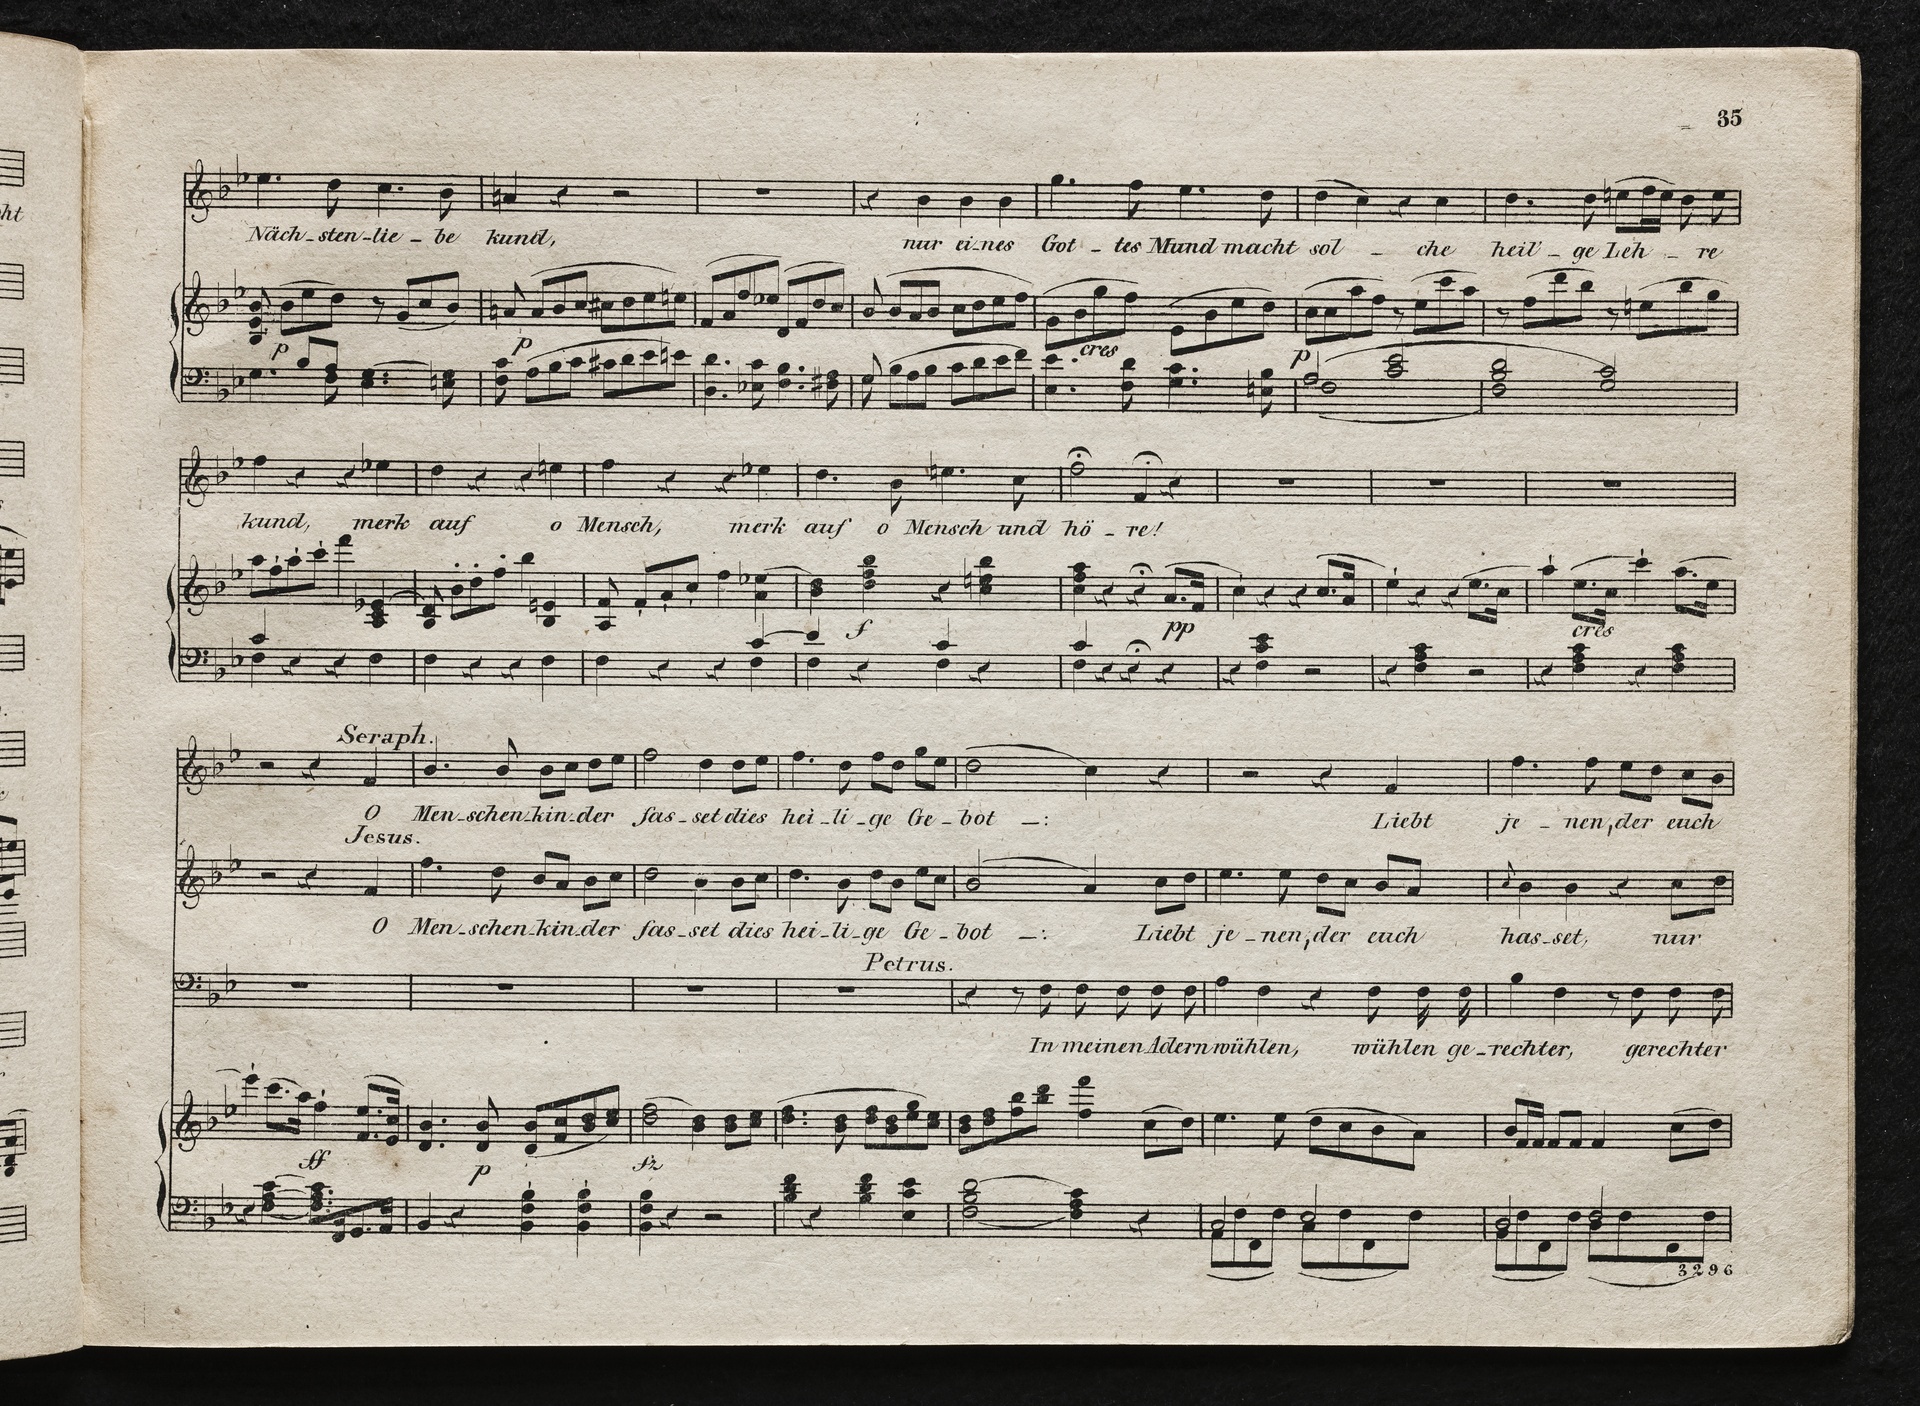 35
Näch-sten-lie-be kund, nur ei-nes Got-tes Mund macht sol-che heil'-ge Leh-re
p p cres p
kund, merk auf o Mensch, merk auf o Mensch und hö-re!
f pp cres
Seraph.
O Men-schen-kin-der fas-set dies hei-li-ge Ge-bot -: Liebt je-nen, der euch
Jesus.
O Men-schen-kin-der fas-set dies hei-li-ge Ge-bot -: Liebt je-nen, der euch has-set, nur
Petrus.
In meinen Adern wühlen, wühlen ge-rechter, gerechter
ff p fz
3296